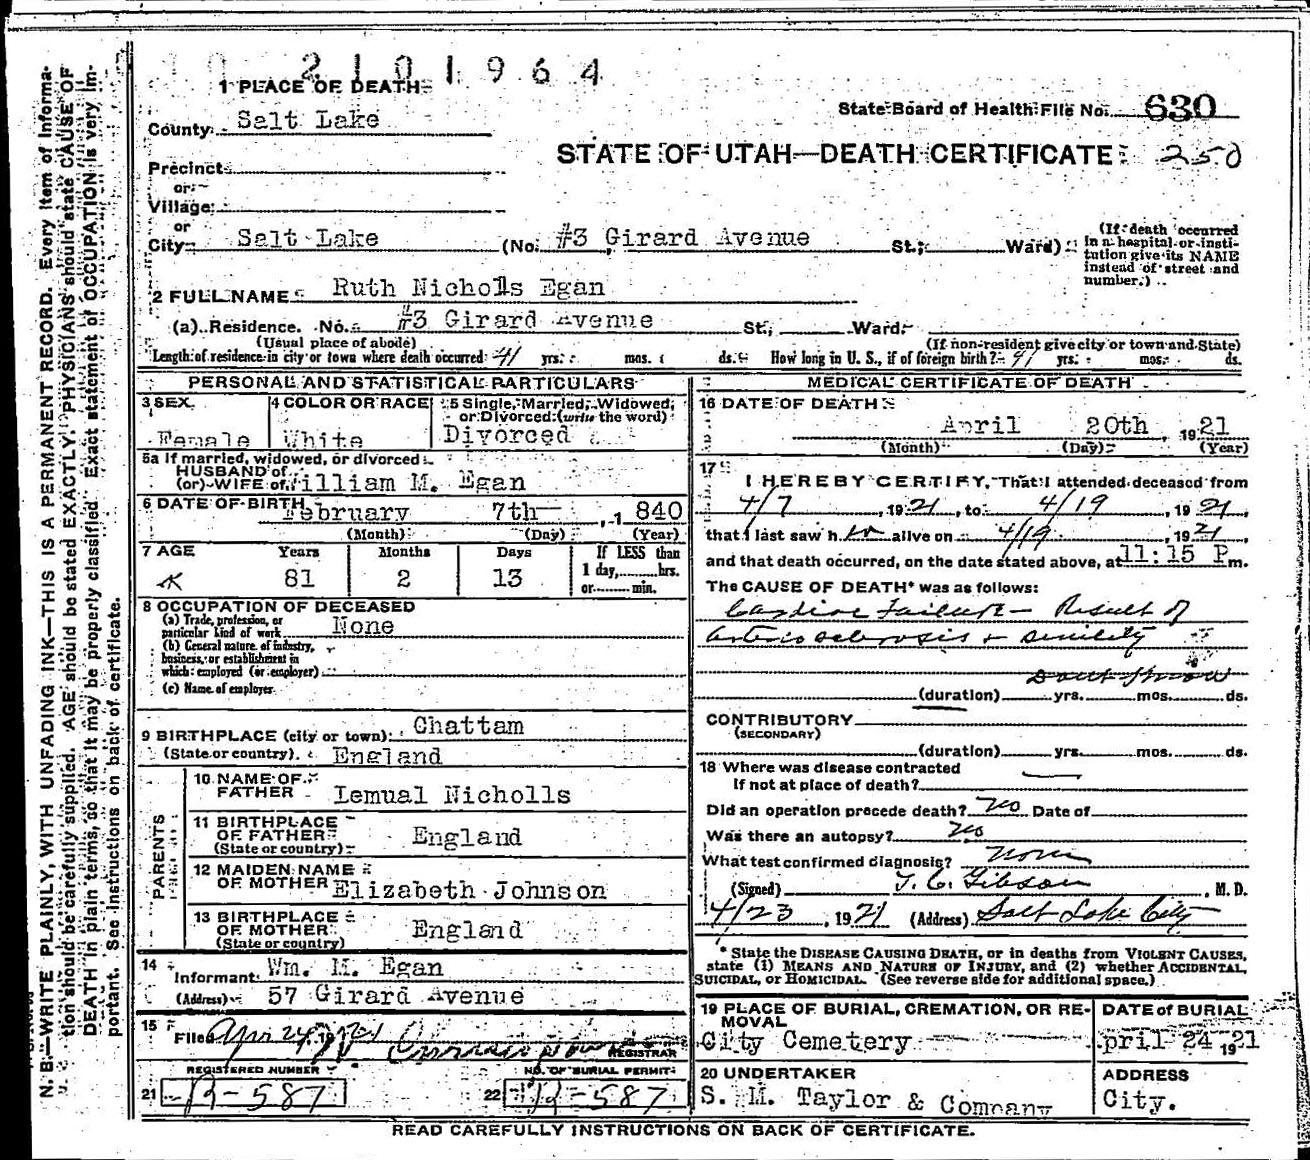 2101964
1 PLACE OF DEATH
State Board of Health File No. 630
County Salt Lake
STATE OF UTAH—DEATH CERTIFICATE 250
Precinct
or
Village
or
City Salt Lake (No. #3 Girard Avenue St.; Ward)
(If death occurred in a hospital or institution give its NAME instead of street and number.)
2 FULL NAME Ruth Nicholls Egan
(a) Residence. No. #3 Girard Avenue St., Ward.
(Usual place of abode) (If non-resident give city or town and State)
Length of residence in city or town where death occurred 41 yrs. mos. ds. How long in U. S., if of foreign birth? 41 yrs. mos. ds.
PERSONAL AND STATISTICAL PARTICULARS
3 SEX Female
4 COLOR OR RACE White
5 Single, Married, Widowed, or Divorced (write the word) Divorced
5a If married, widowed, or divorced
HUSBAND of
(or) WIFE of William M. Egan
6 DATE OF BIRTH February 7th, 1840
(Month) (Day) (Year)
7 AGE Years Months Days If LESS than
81 2 13 1 day, hrs.
or min.
8 OCCUPATION OF DECEASED
(a) Trade, profession, or
particular kind of work None
(b) General nature of industry,
business, or establishment in
which employed (or employer)
(c) Name of employer
9 BIRTHPLACE (city or town) Chattam
(State or country). England
PARENTS
10 NAME OF
FATHER Lemual Nicholls
11 BIRTHPLACE
OF FATHER England
(State or country)
12 MAIDEN NAME
OF MOTHER Elizabeth Johnson
13 BIRTHPLACE
OF MOTHER England
(State or country)
14
Informant Wm. M. Egan
(Address) 57 Girard Avenue
15
Filed Apr 24, 1921
REGISTRAR
REGISTERED NUMBER NO. OF BURIAL PERMIT
21 B-587 22 B-587
MEDICAL CERTIFICATE OF DEATH
16 DATE OF DEATH
April 20th, 1921
(Month) (Day) (Year)
17
I HEREBY CERTIFY, That I attended deceased from
4/7, 1921, to 4/19, 1921,
that I last saw her alive on 4/19, 1921,
and that death occurred, on the date stated above, at 11:15 P m.
The CAUSE OF DEATH* was as follows:
Cardiac Failure - Result of
arteriosclerosis + senility
(duration) yrs. mos. ds.
CONTRIBUTORY
(SECONDARY)
(duration) yrs. mos. ds.
18 Where was disease contracted
If not at place of death?
Did an operation precede death? No Date of
Was there an autopsy? No
What test confirmed diagnosis? None
(Signed) T. C. Gibson, M. D.
4/23, 1921 (Address) Salt Lake City
* State the DISEASE CAUSING DEATH, or in deaths from VIOLENT CAUSES,
state (1) MEANS AND NATURE OF INJURY, and (2) whether ACCIDENTAL,
SUICIDAL, or HOMICIDAL. (See reverse side for additional space.)
19 PLACE OF BURIAL, CREMATION, OR REMOVAL DATE of BURIAL
City Cemetery April 24 1921
20 UNDERTAKER ADDRESS
S. M. Taylor & Company City.
READ CAREFULLY INSTRUCTIONS ON BACK OF CERTIFICATE.
N. B.—WRITE PLAINLY, WITH UNFADING INK—THIS IS A PERMANENT RECORD. Every item of information should be carefully supplied. AGE should be stated EXACTLY. PHYSICIANS should state CAUSE OF DEATH in plain terms, so that it may be properly classified. Exact statement of OCCUPATION is very important. See instructions on back of certificate.